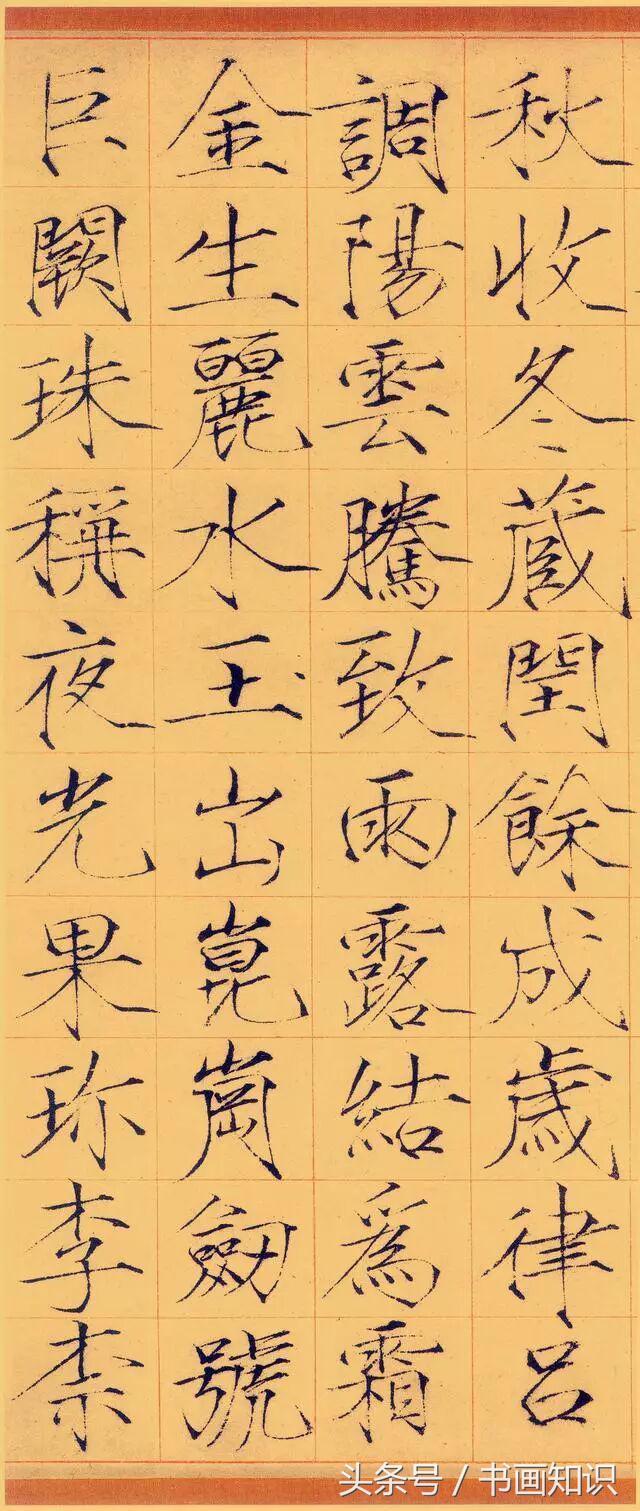 秋收冬蔵閏餘成歲律呂
調陽雲騰致雨露結為霜
金生麗水玉出崑崗劒號
巨闕珠稱夜光果珎李柰
头条号 / 书画知识